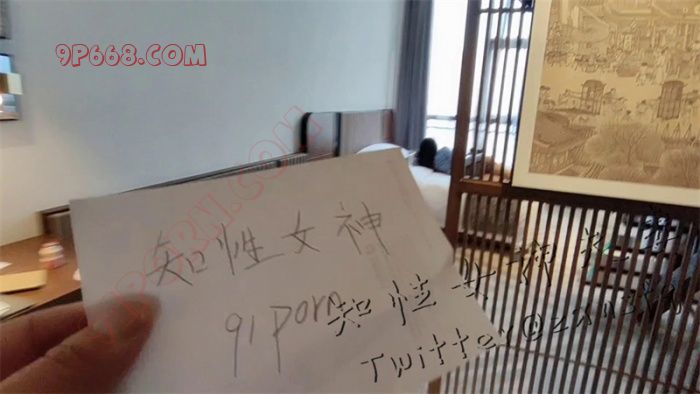 9P668.COM
知性女神
91porn
知性女神
Twitter@